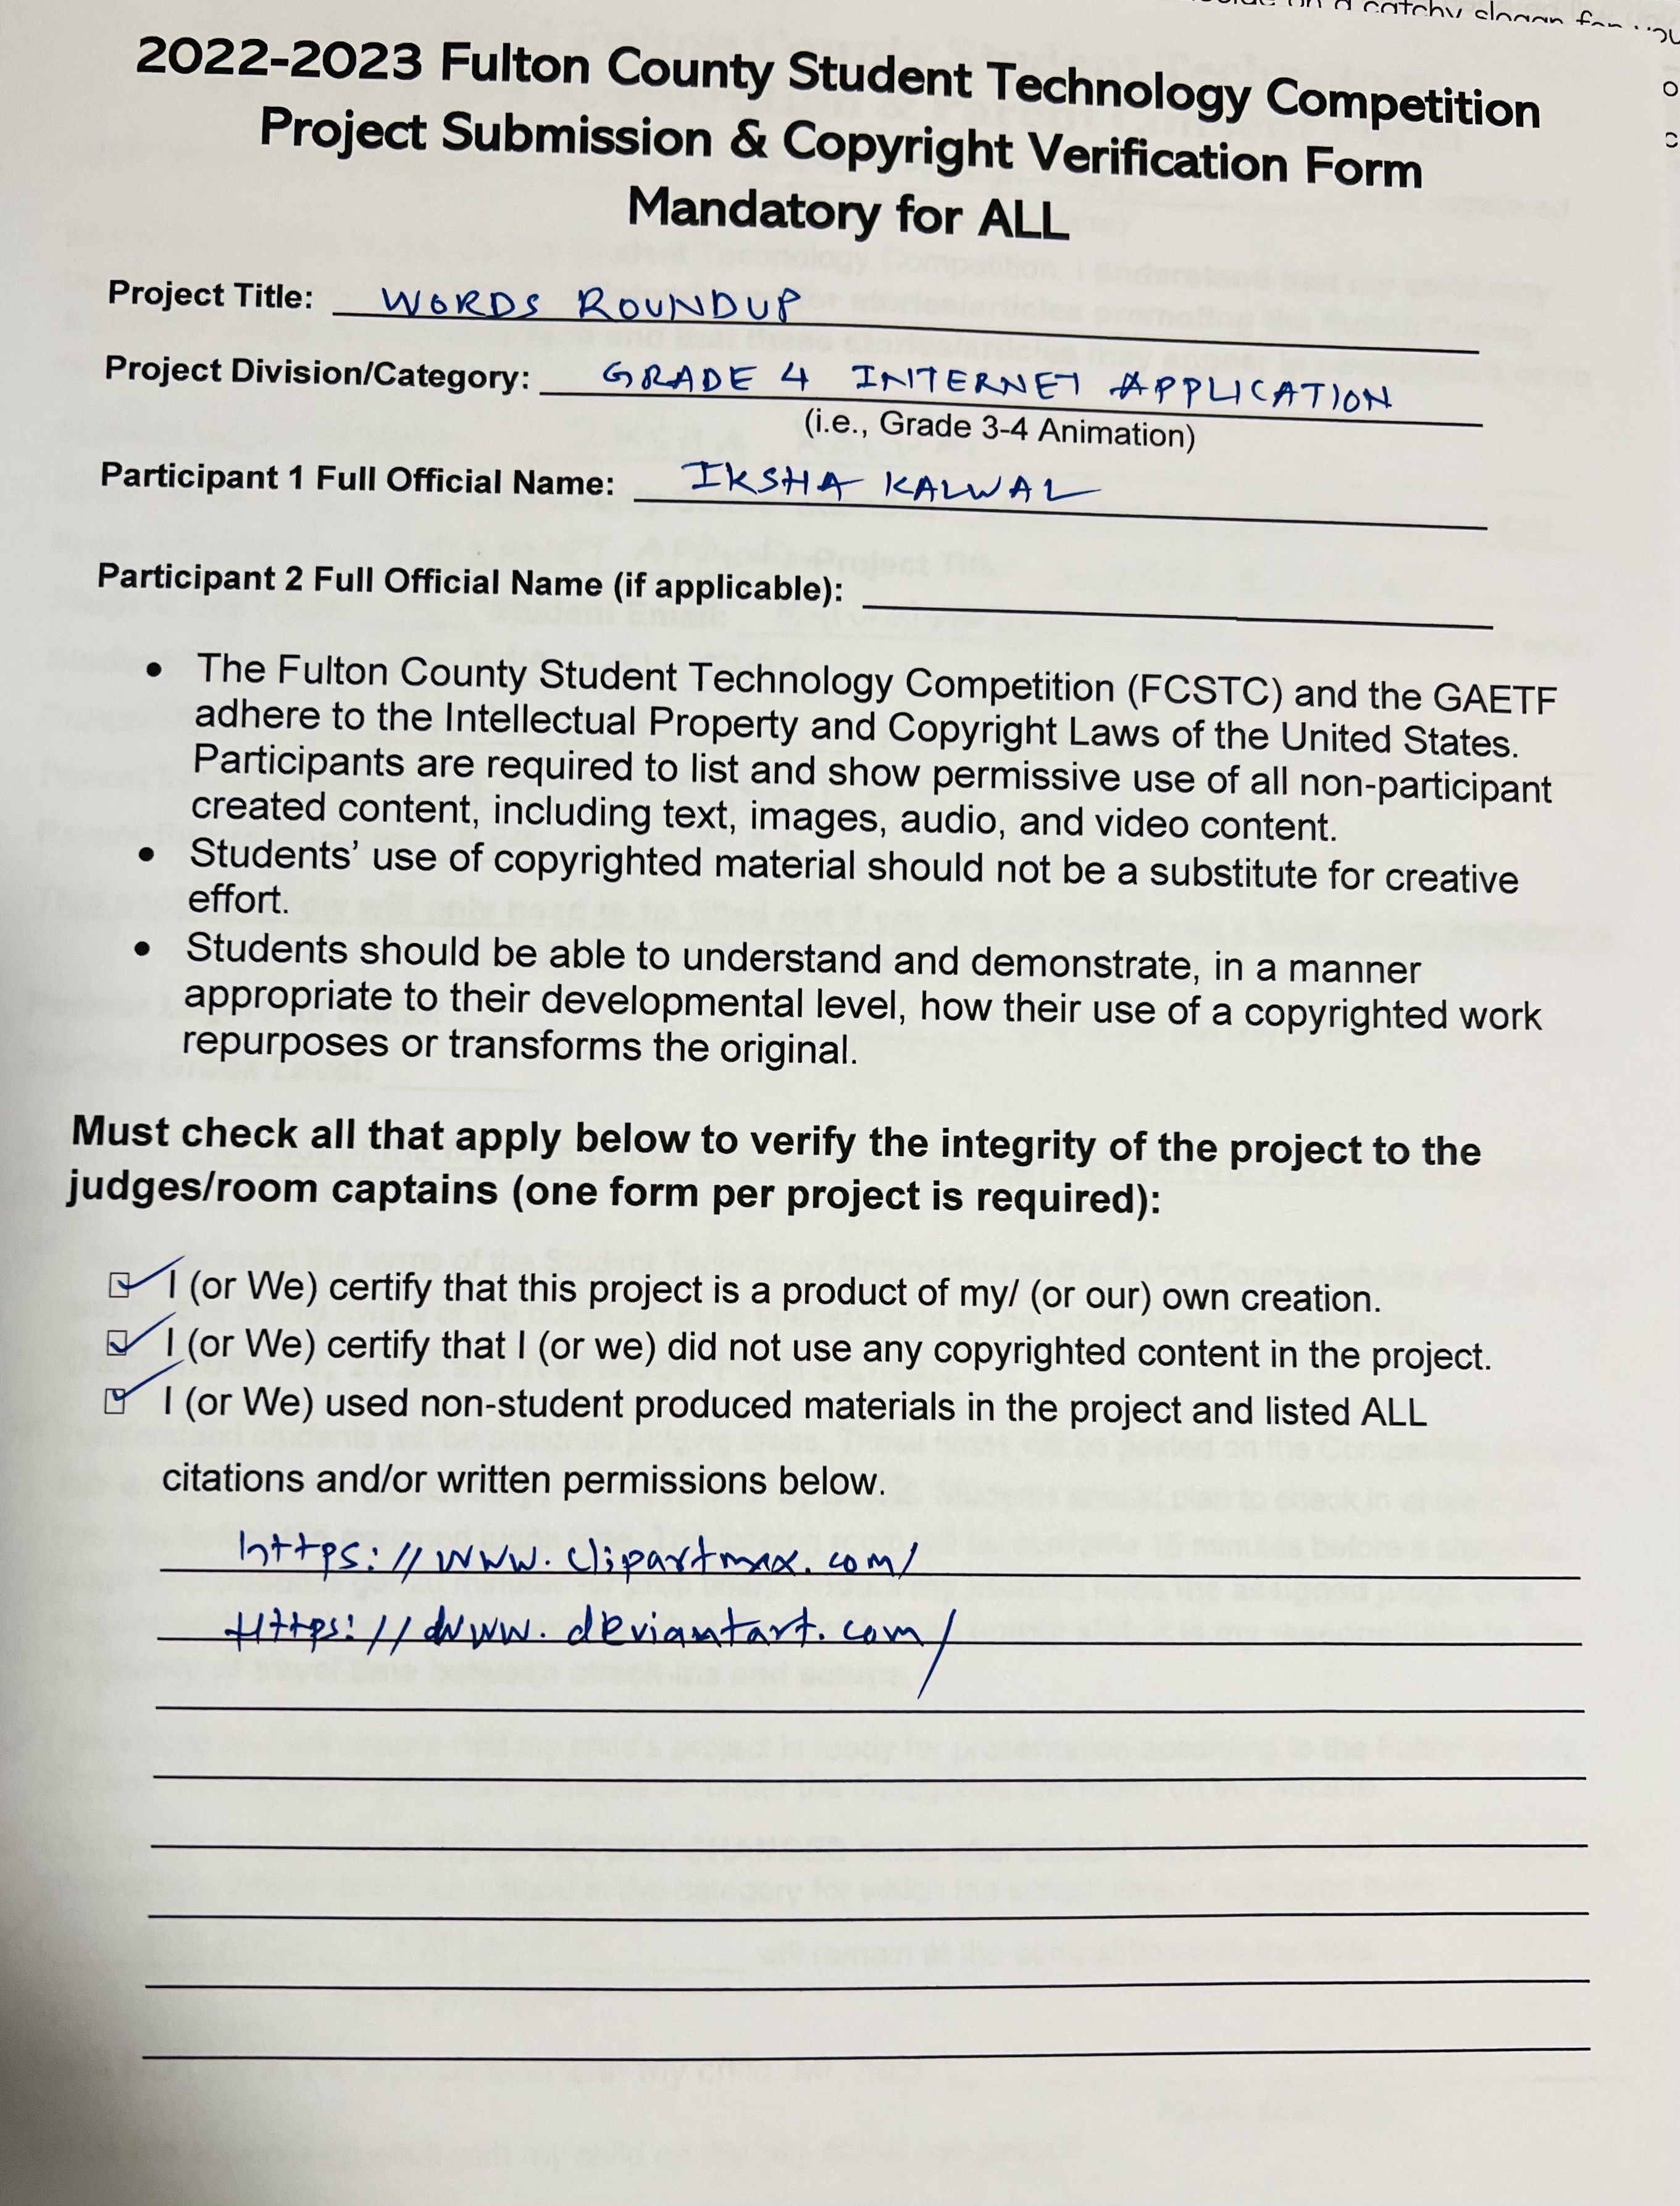 a catchy slogan for
2022-2023 Fulton County Student Technology Competition
Project Submission & Copyright Verification Form
Mandatory for ALL
Project Title: WORDS ROUNDUP
Project Division/Category: GRADE 4 INTERNET APPLICATION
(i.e., Grade 3-4 Animation)
Participant 1 Full Official Name: IKSHA KALWAL
Participant 2 Full Official Name (if applicable):
• The Fulton County Student Technology Competition (FCSTC) and the GAETF
adhere to the Intellectual Property and Copyright Laws of the United States.
Participants are required to list and show permissive use of all non-participant
created content, including text, images, audio, and video content.
• Students’ use of copyrighted material should not be a substitute for creative
effort.
• Students should be able to understand and demonstrate, in a manner
appropriate to their developmental level, how their use of a copyrighted work
repurposes or transforms the original.
Must check all that apply below to verify the integrity of the project to the
judges/room captains (one form per project is required):
I (or We) certify that this project is a product of my/ (or our) own creation.
I (or We) certify that I (or we) did not use any copyrighted content in the project.
I (or We) used non-student produced materials in the project and listed ALL
citations and/or written permissions below.
https://www.clipartmax.com/
Https://www.deviantart.com/